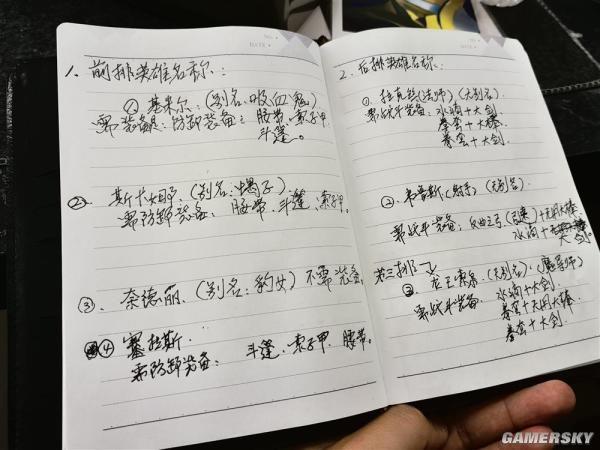 1. 前排英雄名称:
① 基米尔:(别名:吸血鬼)
需装备是:防卸装备:腰带、索子甲
斗篷。
② 斯卡奶:(别名:蝎子)
需防卸装备: 腰带、斗篷、索子甲。
③. 奈德丽.(别名:豹女)不需装备
④ 塞拉斯.
需防卸装备: 斗篷、索子甲. 腰带。
NO.
DATE
2. 后排英雄名称:
①. 拉克丝(法师)(无别名)
需战斗装备: 水滴+大剑
拳套+大棒
拳套+大剑.
②. 韦鲁斯(射手)(无别名).
需战斗装备: 反曲之弓(攻速)+无用大棒
水滴+大剑.
第三排
③. 龙王索尔(无别名)(魔导师)
需战斗装备. 水滴+大剑.
拳套+无用大棒
拳套+大剑.
GAMERSKY